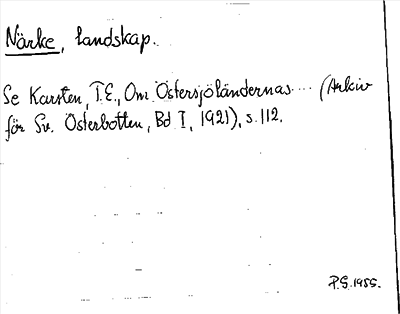 Närke, landskap.
Se Karsten, T.E., Om Östersjöländernas ... (Arkiv
för Sv. Österbotten, Bd I, 1921), s. 112.
P.S. 1955.